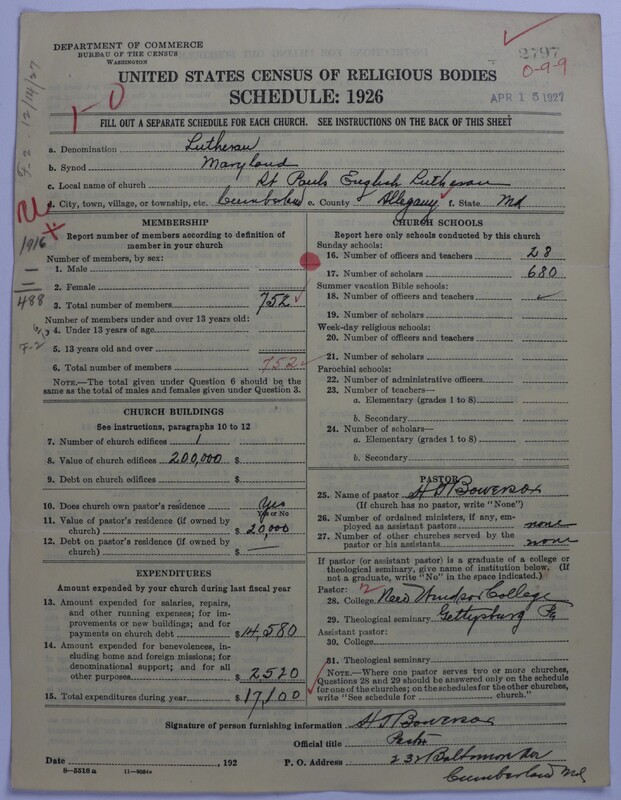 DEPARTMENT OF COMMERCE
BUREAU OF THE CENSUS
WASHINGTON
2797
0-9-9
UNITED STATES CENSUS OF RELIGIOUS BODIES
SCHEDULE: 1926
APR 15 1927
F-2 12/14/27
1-0
FILL OUT A SEPARATE SCHEDULE FOR EACH CHURCH. SEE INSTRUCTIONS ON THE BACK OF THIS SHEET
a. Denomination Lutheran
b. Synod Maryland
c. Local name of church St Pauls English Lutheran
d. City, town, village, or township, etc. Cumberland e. County Allegany f. State Md
1916
488
F-2
MEMBERSHIP
Report number of members according to definition of
member in your church
Number of members, by sex:
1. Male
2. Female
3. Total number of members 752
Number of members under and over 13 years old:
4. Under 13 years of age
5. 13 years old and over
6. Total number of members 752
NOTE.—The total given under Question 6 should be the
same as the total of males and females given under Question 3.
CHURCH BUILDINGS
See instructions, paragraphs 10 to 12
7. Number of church edifices 1
8. Value of church edifices 200,000 $
9. Debt on church edifices $
10. Does church own pastor's residence Yes
Yes or No
11. Value of pastor's residence (if owned by
church) $ 20,000
12. Debt on pastor's residence (if owned by
church) $ —
EXPENDITURES
Amount expended by your church during last fiscal year
13. Amount expended for salaries, repairs,
and other running expenses; for
improvements or new buildings; and for
payments on church debt $ 14,580
14. Amount expended for benevolences, in-
cluding home and foreign missions; for
denominational support; and for all
other purposes $ 2520
15. Total expenditures during year $ 17100
CHURCH SCHOOLS
Report here only schools conducted by this church
Sunday schools:
16. Number of officers and teachers 28
17. Number of scholars 680
Summer vacation Bible schools:
18. Number of officers and teachers
19. Number of scholars
Week-day religious schools:
20. Number of officers and teachers
21. Number of scholars
Parochial schools:
22. Number of administrative officers
23. Number of teachers—
a. Elementary (grades 1 to 8)
b. Secondary
24. Number of scholars—
a. Elementary (grades 1 to 8)
b. Secondary
PASTOR
25. Name of pastor H T Bowersox
(If church has no pastor, write "None")
26. Number of ordained ministers, if any, em-
ployed as assistant pastors none
27. Number of other churches served by the
pastor or his assistants none
If pastor (or assistant pastor) is a graduate of a college or
theological seminary, give name of institution below. (If
not a graduate, write "No" in the space indicated.)
Pastor:
28. College New Windsor College
29. Theological seminary Gettysburg Pa
Assistant pastor:
30. College
31. Theological seminary
NOTE.—Where one pastor serves two or more churches,
Questions 28 and 29 should be answered only on the schedule
for one of the churches; on the schedules for the other churches,
write "See schedule for church."
Signature of person furnishing information H T Bowersox
Official title Pastor
Date , 192 P. O. Address 232 Baltimore Ave
Cumberland Md
8-5518a 11-9084